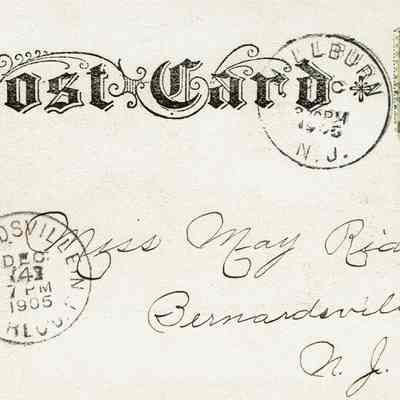 ost Card
ILLBURN
C
PM
1905
N. J.
DSVILLE N
DEC
4
7 PM
1905
REC'D.
Miss May Rid
Bernardsville
N. J.